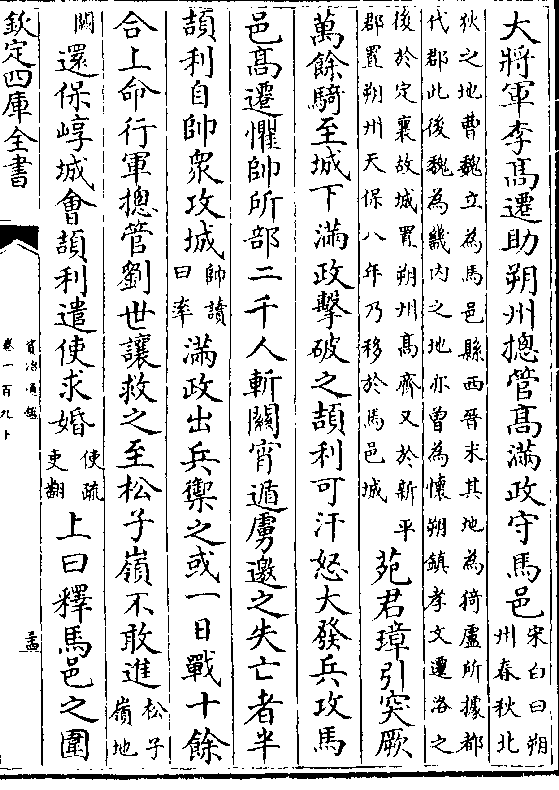 大將軍李髙遷助朔州摠管髙滿政守馬邑
宋白曰朔
州春秋北
狄之地曹魏立為馬邑縣西晉末其地為猗盧所據都
代郡此後魏為畿内之地亦曾為懷朔鎮孝文遷洛之
後於定襄故城置朔州髙齊又於新平
郡置朔州天保八年乃移於馬邑城
苑君璋引突厥
萬餘騎至城下滿政擊破之頡利可汗怒大發兵攻馬
邑髙遷懼帥所部二千人斬關宵遁虜邀之失亡者半
頡利自帥衆攻城
帥讀
曰率
滿政出兵禦之或一日戰十餘
合上命行軍摠管劉世讓救之至松子嶺不敢進
松子
嶺地
闕
還保崞城會頡利遣使求婚
使疏
吏翻
上曰釋馬邑之圍
欽定四庫全書
資治通鑑
卷一百九十